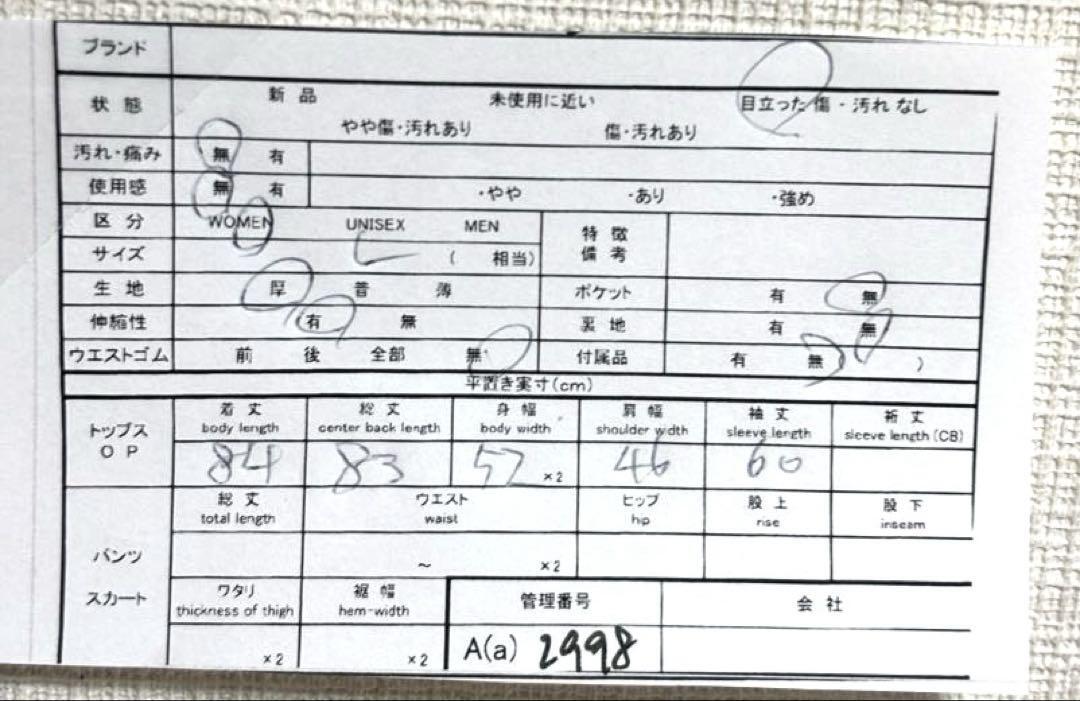 ブランド
状態 新品 未使用に近い 目立った傷・汚れなし
やや傷・汚れあり 傷・汚れあり
汚れ・痛み 無 有
使用感 無 有 ・やや ・あり ・強め
区分 WOMEN UNISEX MEN 特徴備考
サイズ L ( 相当)
生地 厚 普 薄 ポケット 有 無
伸縮性 有 無 裏地 有 無
ウエストゴム 前 後 全部 無 付属品 有 無 )
平置き実寸(cm)
トップス OP 着丈 総丈 身幅 肩幅 袖丈 裄丈
body length center back length body width shoulder width sleeve length sleeve length (CB)
84 83 52 ×2 46 60
総丈 ウエスト ヒップ 股上 股下
total length waist hip rise inseam
パンツ ～ ×2
スカート ワタリ 裾幅 管理番号 会社
thickness of thigh hem-width
×2 ×2 A(a) 2998